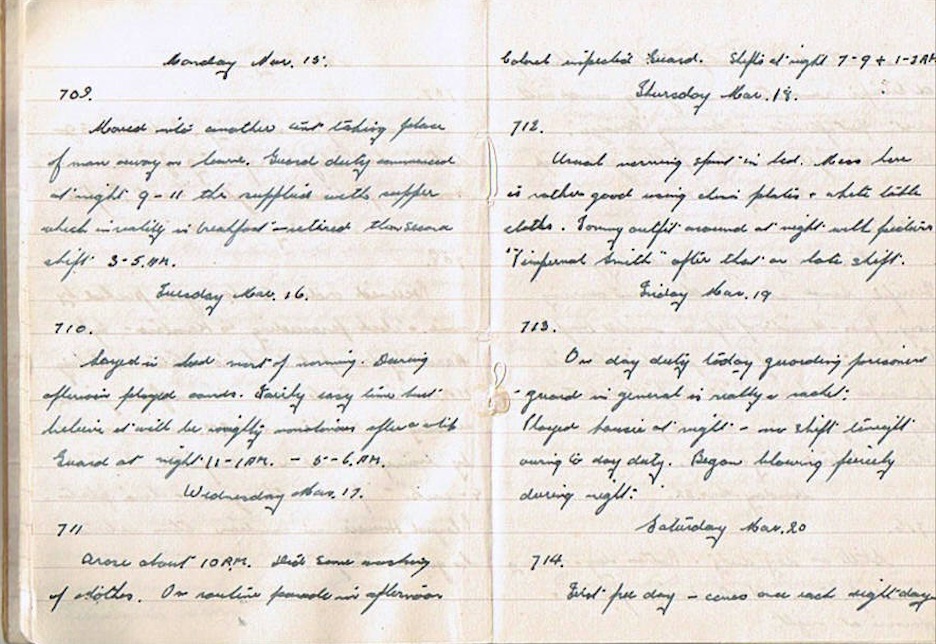 Monday Mar. 15.
709.
Moved into another tent taking place
of man away on leave. Guard duty commenced
at night 9-11 then supplied with supper
which in reality is breakfast - retired then second
shift 3-5 AM.
Tuesday Mar. 16.
710.
Layed in bed most of morning. During
afternoon played cards. Fairly easy time but
believe it will be roughly monotonous after a bit
Guard at night 11-1 AM. - 5-6 AM.
Wednesday Mar. 17.
711
Arose about 10 AM. Did some washing
of clothes. On routine parade in afternoon
Colonel inspected Guard. Shifts at night 7-9 + 1-3 AM
Thursday Mar. 18.
712.
Usual morning spent in bed. Mess here
is rather good using china plates + white table
cloths. Tommy outfit around at night with pictures
"Imperial Smith" after that on late shift.
Friday Mar. 19
713.
On day duty today guarding prisoners
- guard in general is really a racket.
Played housie at night - no shift tonight
owing to day duty. Began blowing fiercely
during night.
Saturday Mar. 20
714.
First free day - comes once each eight days